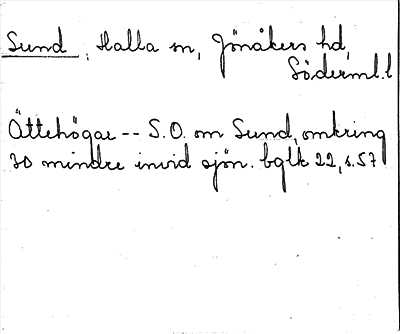 Sund, Halla sn, Jönåkers hd,
Söderml.l
Ättehögar -- S.O. om Sund, omkring
30 mindre invid sjön. bglk 22, s.57